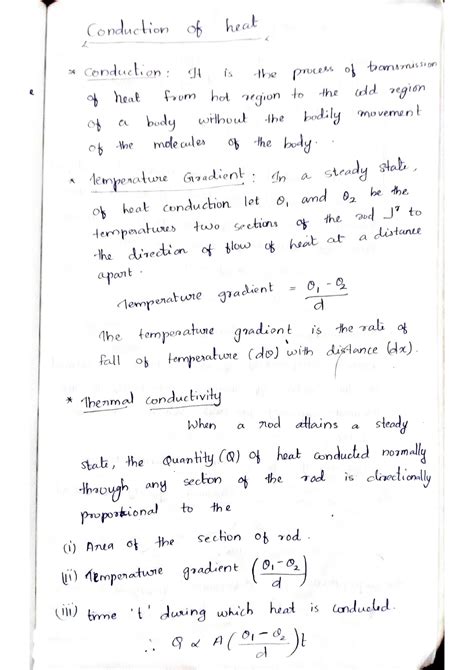 Conduction of heat
* Conduction : It is the process of transmission
of heat from hot region to the cold region
of a body without the bodily movement
of the molecules of the body.
* Temperature Gradient : In a steady state,
of heat conduction let θ₁ and θ₂ be the
temperatures two sections of the rod ⅃ʳ to
the direction of flow of heat at a distance
apart.
Temperature gradient = (θ₁ - θ₂)/d
The temperature gradient is the rate of
fall of temperature (dθ) with distance (dx).
* Thermal conductivity
When a rod attains a steady
state, the Quantity (Q) of heat conducted normally
through any secton of the rod is directionally
proportional to the
(i) Area of the section of rod.
(ii) Temperature gradient ((θ₁-θ₂)/d)
(iii) time 't' during which heat is conducted.
∴ Q ∝ A((θ₁-θ₂)/d)t